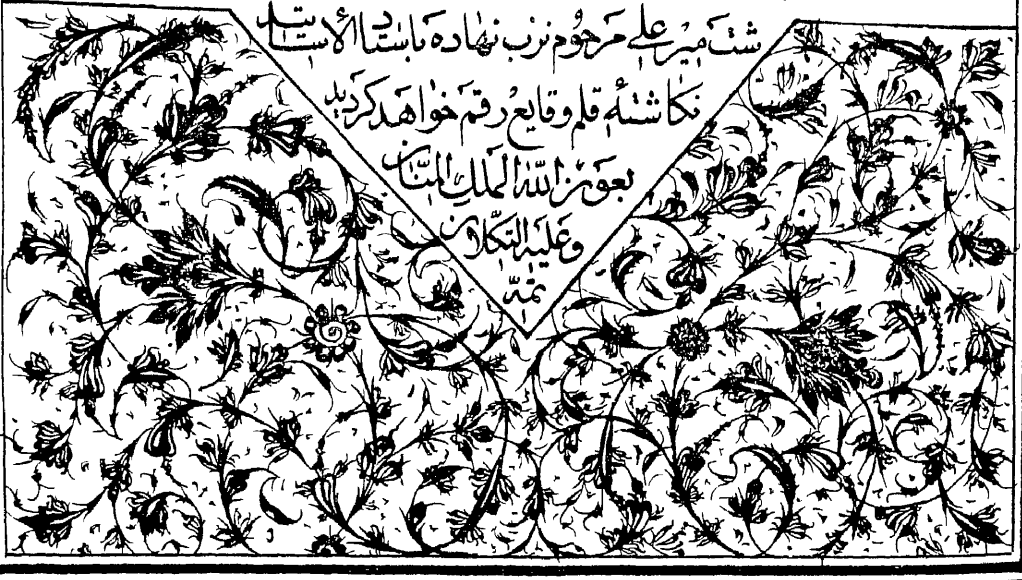 شت میر علی مرحوم نزب نهاده باستاد الاساتید
نکاشتهٔ قلم وقایع رقم خواهد کردید
بعون الله الملک المنان
وعلیه التکلان
تمه